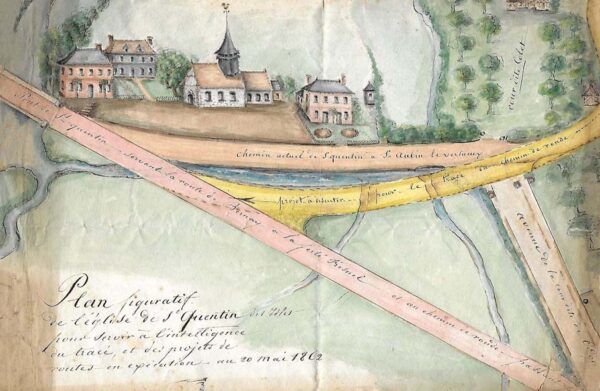 cour côté Colet
Chemin actuel de St quentin à St Aubin le vertueux
Pont de St quentin suivant la route de Bernay à la ferté Fresnel et au chemin de ronde
projet à discuter pour le tracé du chemin de ronde
avenue de la
Plan figuratif
de l'église de St Quentin des Isles
pour servir à l'intelligence
du tracé, et des projets de
routes en exécution - au 20 mai 1862